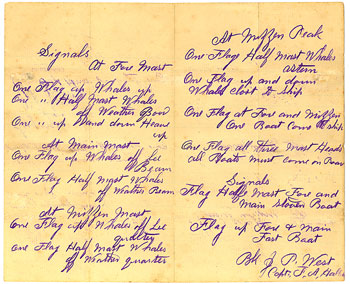 Signals
At Fore Mast
One Flag up Whales up
One " Half Mast Whales
off Weather Bow
One " up and down Heave
up
At Main Mast
One Flag up Whales off Lee
Beam
One Flag Half Mast Whales
off Weather Beam
At Mizzen Mast
One Flag up Whales off Lee
quarter
One Flag Half Mast Whales
off Weather quarter
At Mizzen Peak
One Flag Half Mast Whales
astern
One Flag up and down
Whales close to ship
One Flag at Fore and Mizzen
One Boat Come to ship
One Flag all three Mast Heads
all Boats must come on Board
Signals
Flag Half Mast Fore and
Main Stoven Boat
Flag up Fore & Main
Fast Boat
Bk J. P. West
Capt.